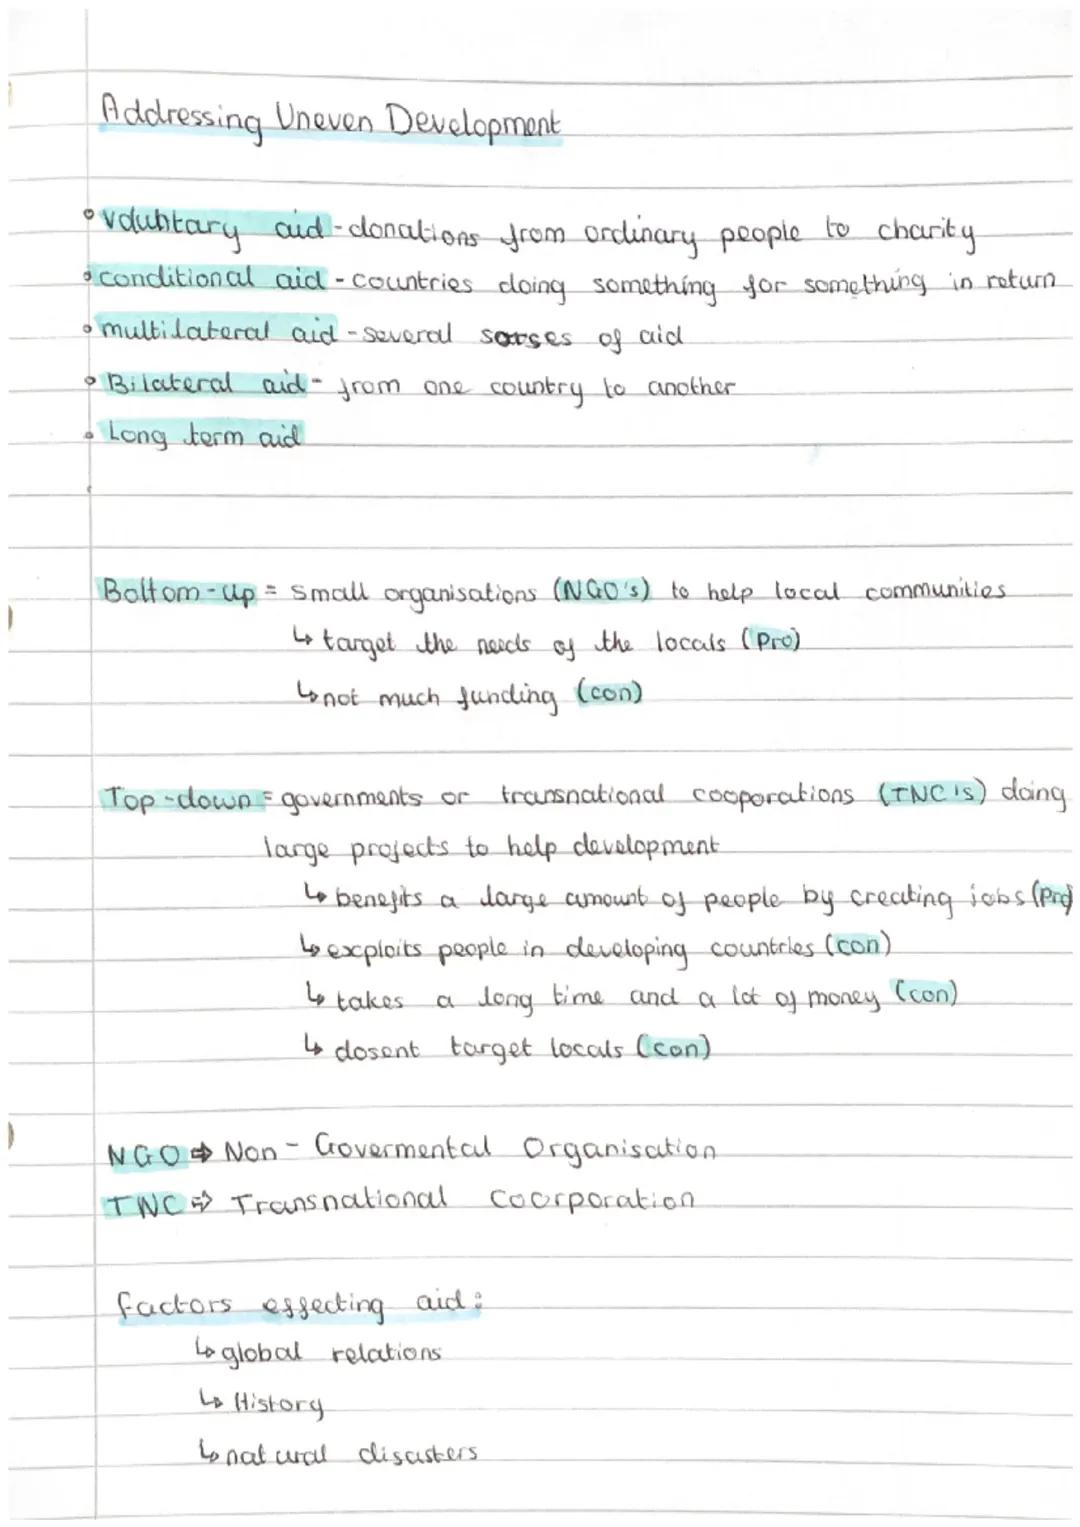 Addressing Uneven Development
• voluntary aid - donations from ordinary people to charity
• conditional aid - countries doing something for something in return
• multilateral aid - several sorses of aid
• Bilateral aid - from one country to another
• Long term aid
Bottom-up = small organisations (NGO's) to help local communities
↳ target the needs of the locals (Pro)
↳ not much funding (con)
Top-down = governments or transnational cooporations (TNC's) doing
large projects to help development
↳ benefits a large amount of people by creating jobs (Pro)
↳ exploits people in developing countries (con)
↳ takes a long time and a lot of money (con)
↳ dosent target locals (con)
NGO ⇒ Non - Govermental Organisation
TNC ⇒ Transnational Coorporation
factors effecting aid:
↳ global relations
↳ History
↳ natural disasters